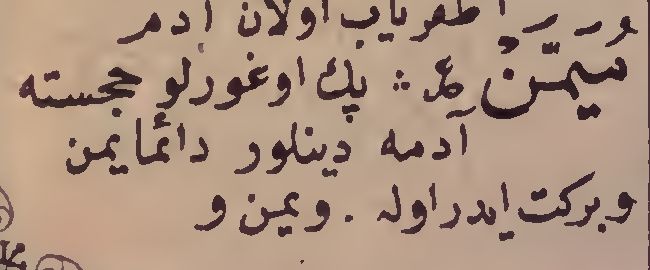 ظفرياب اولان آدم
مُتَيَمِّنْ پك اوغورلو خجسته
آدمه دينلور دائما يمن
وبركت ايدر اوله . ويمن و